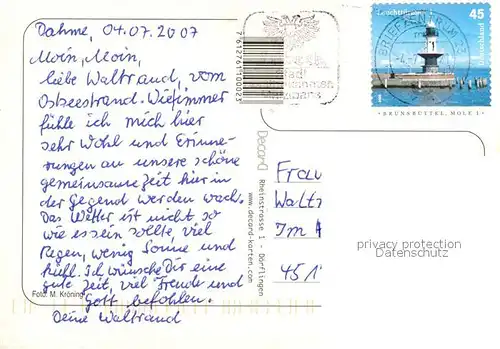 Dahme, 04.07.2007
Moin, Moin,
liebe Waltraud, vom
Ostseestrand. Wie immer
fühle ich mich hier
sehr wohl und Erinne-
rungen an unsere schöne
gemeinsame Zeit hier in
der Gegend werden wach.
Das Wetter ist nicht so
wie es sein sollte viel
Regen, wenig Sonne und
kühl. Ich wünsche Dir eine
gute Zeit, viel Freude und
Gott befohlen.
Deine Waltraud
Foto: M. Kröning
7612761100023
Decard Rheinstrasse 1 - Dörflingen
www.decard-karten.com
BRIEFZENTRUM 23
Leuchttürme
45
Deutschland
BRUNSBÜTTEL, MOLE 1
Frau
Walt
Im
451
privacy protection
Datenschutz